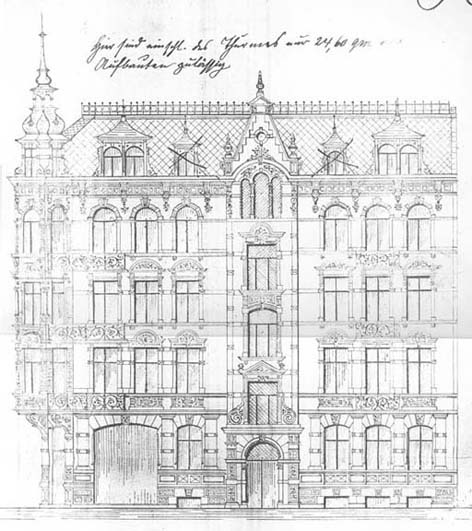 Hier sind einschl. des Thurmes nur 24,60 qm
Aufbauten zulässig